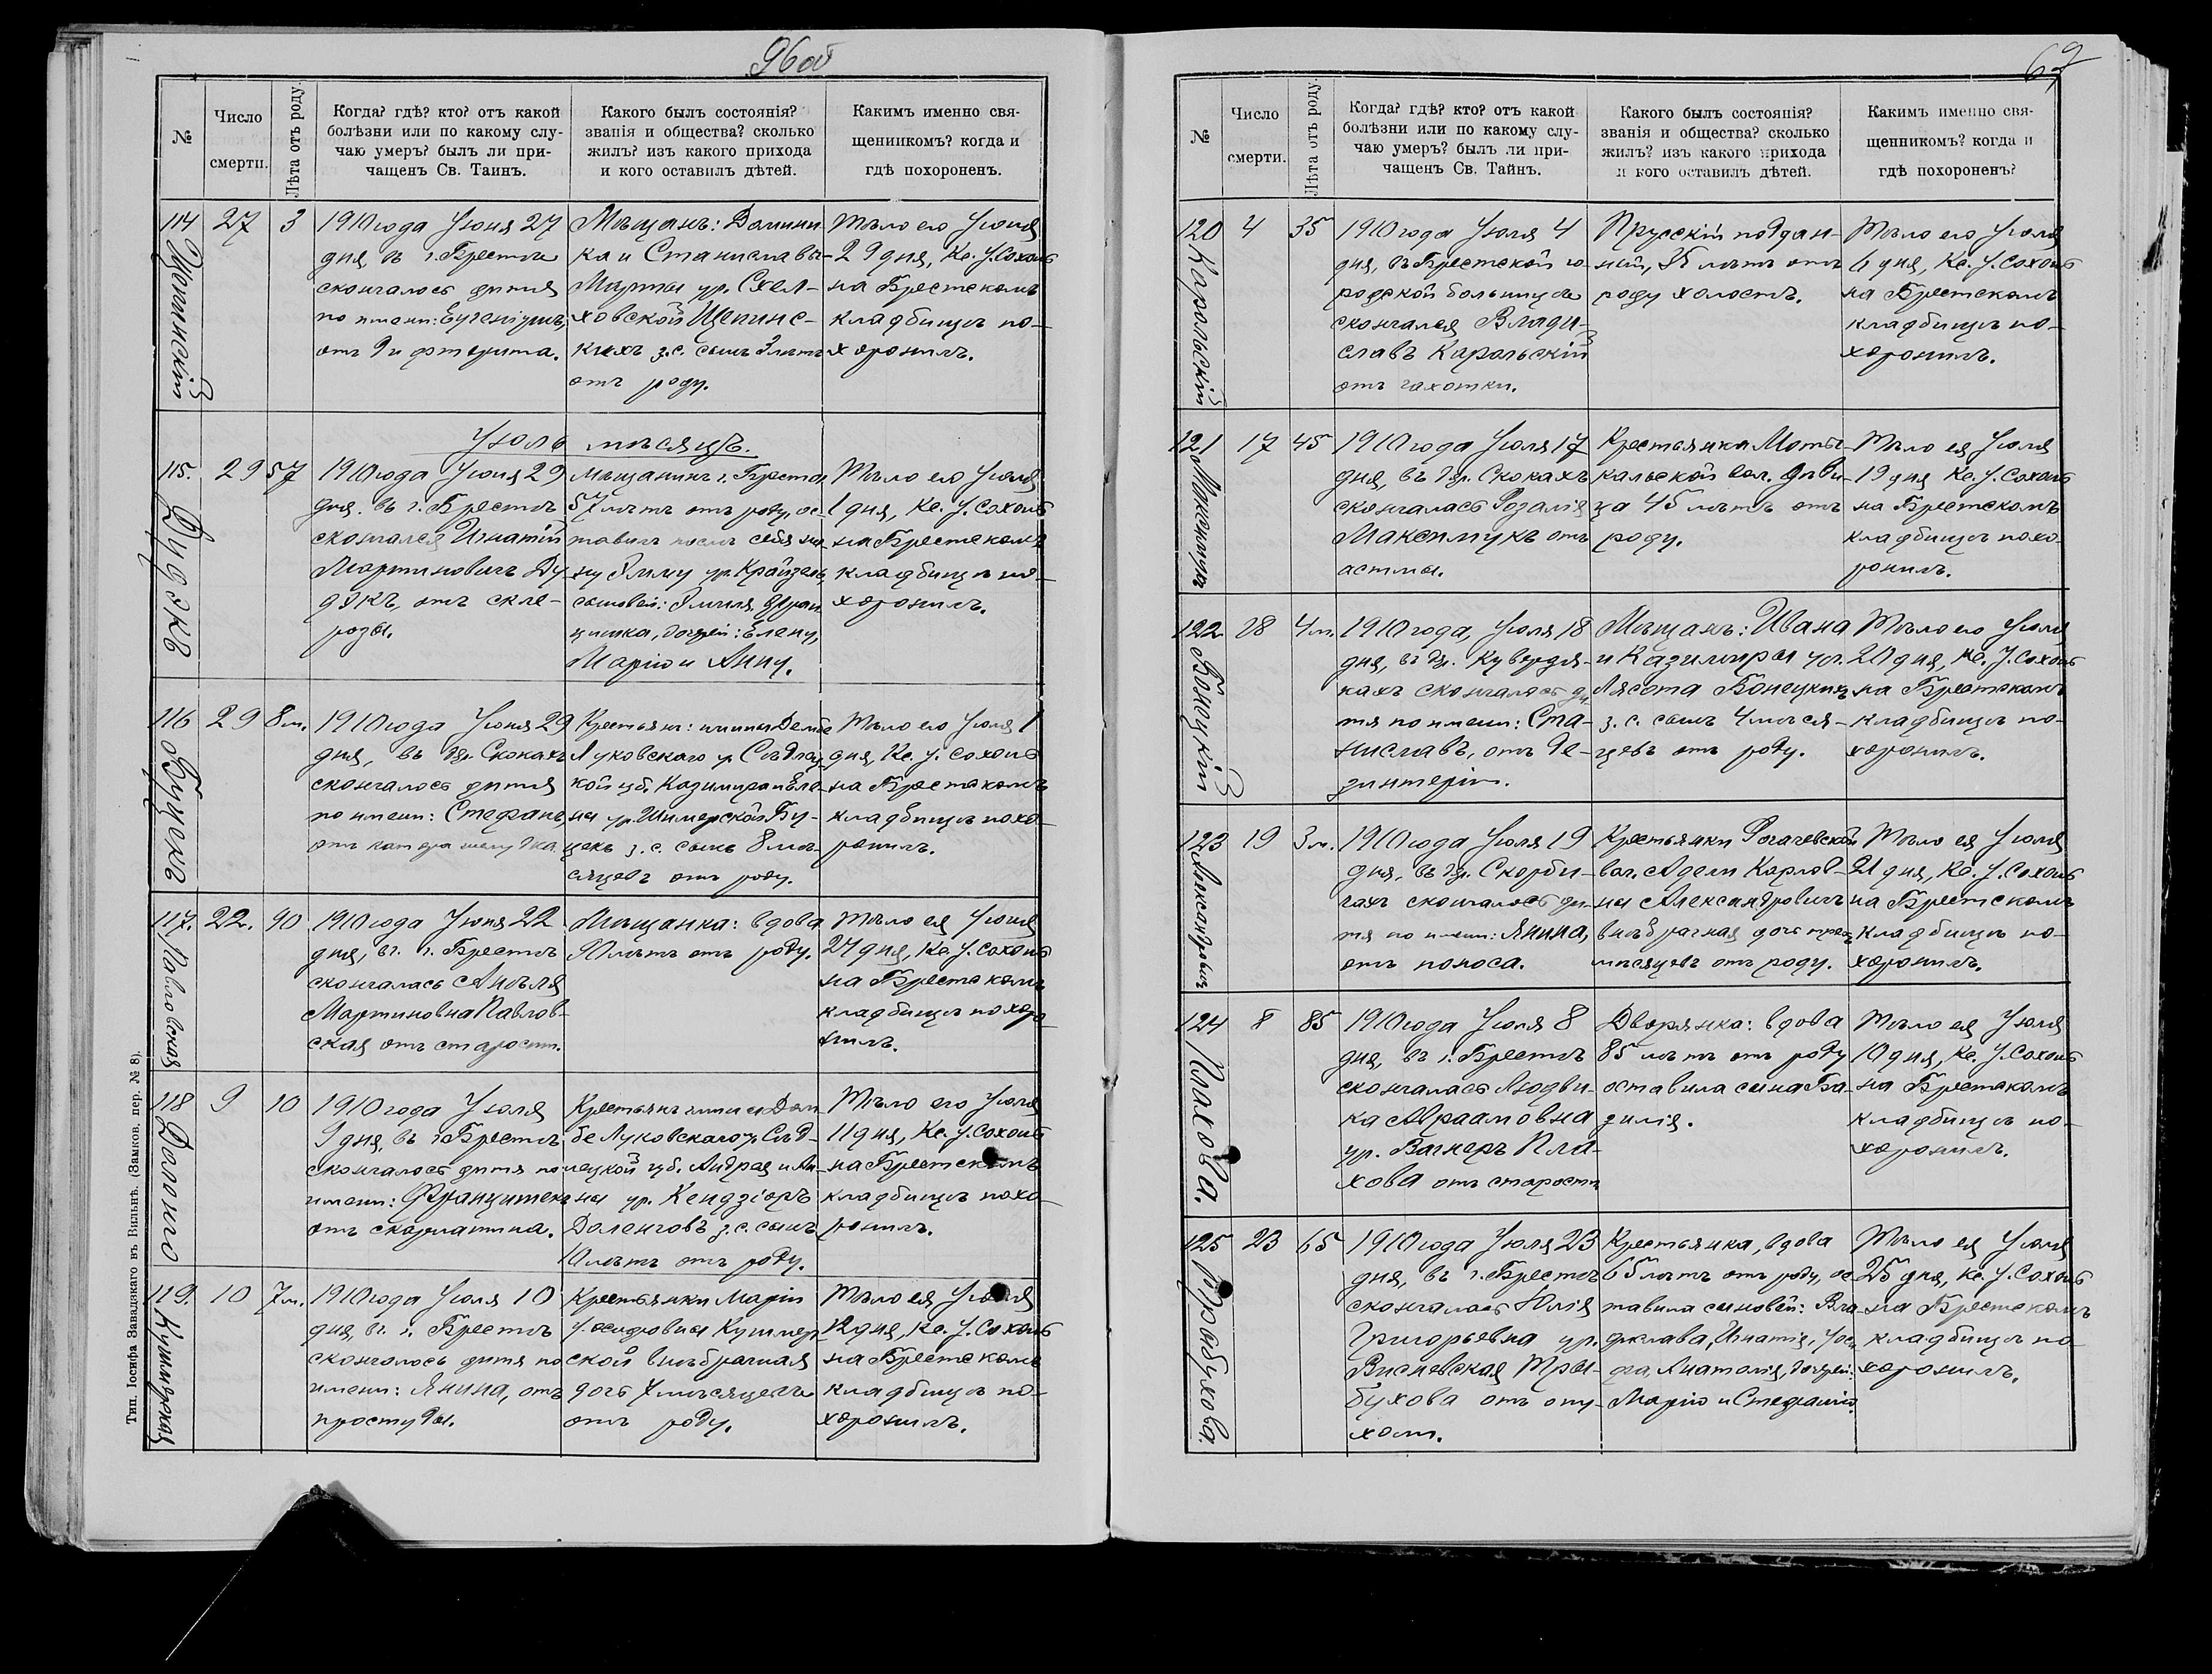 96 об
№
Число
смерти.
Лѣта отъ роду.
Когда? гдѣ? кто? отъ какой
болѣзни или по какому слу-
чаю умеръ? былъ ли при-
чащенъ Св. Таинъ.
Какого былъ состоянія?
званія и общества? сколько
жилъ? изъ какого прихода
и кого оставилъ дѣтей.
Какимъ именно свя-
щенникомъ? когда и
гдѣ похороненъ.
114
27
3
1910 года Іюня 27
дня, въ г. Брестѣ
скончалось дитя
по имени: Евгеніушъ,
отъ дифтерита.
Мѣщанъ: Домини
ка и Станиславы-
Марты ур.
ховской Щепинс-
кихъ з.с. сынъ 3 лѣтъ
отъ роду.
Тѣло его Іюня
29 дня, Кс. І. Сохонь
на Брестскомъ
кладбищѣ по-
хоронилъ.
Щепинскій
Іюль мѣсяцъ.
115.
29
57
1910 года Іюня 29
дня въ г. Брестѣ
скончался Игнатій
Мартиновичъ Ду-
дэкъ, отъ скле-
розы.
Мѣщанинъ г. Бреста
57 лѣтъ отъ роду, ос-
тавилъ послѣ себя же-
ну Эмму ур.
сыновей: Эмиля, Фран
цишка, дочерей: Елену,
Марію и Анну.
Тѣло его Іюля
1 дня, Кс. І. Сохонь
на Брестскомъ
кладбищѣ по-
хоронилъ.
Дудэкъ
116
29
8 м.
1910 года Іюня 29
дня, въ др. Скокахъ
скончалось дитя
по имени: Стефанъ,
отъ катара желудка.
Крестьянъ: гмины Дембе
Луковскаго у. Сѣдлец-
кой губ. Казимира и Еле-
ны ур. Шимерской Бу-
цекъ з.с. сынъ 8 мѣ-
сяцевъ отъ роду.
Тѣло его Іюля 1
дня, Кс. І. Сохонь
на Брестскомъ
кладбищѣ похо-
ронилъ.
117.
22.
90
1910 года Іюня 22
дня, въ г. Брестѣ
скончалась Анѣля
Мартиновна Павлов-
ская отъ старости.
Мѣщанка: вдова
90 лѣтъ отъ роду.
Тѣло ея Іюня
24 дня, Кс. І. Сохонь
на Брестскомъ
кладбищѣ похоро-
нилъ.
Павловская
118
9
10
1910 года Іюля
9 дня, въ г. Брестѣ
скончалось дитя по
имени: Францишекъ
отъ скарлатина.
Крестьянъ гмины Дем
бе Луковскаго у. Сѣд-
лецкой губ. Андрея и Ан-
ны ур. Кендзіоръ
Доленговъ з.с. сынъ
10 лѣтъ отъ роду.
Тѣло его Іюля
11 дня, Кс. І. Сохонь
на Брестскомъ
кладбищѣ похо-
ронилъ.
119.
10
7 м.
1910 года Іюля 10
дня, въ г. Брестѣ
скончалось дитя по
имени: Янина, отъ
простуды.
Крестьянки Маріи
Іосифовны Кушнер
ской внѣбрачная
дочь 7 мѣсяцевъ
отъ роду.
Тѣло ея Іюля
12 дня, Кс. І. Сохонь
на Брестскомъ
кладбищѣ по-
хоронилъ.
Тип. Іосифа Завадзкаго въ Вильнѣ. (Замков. пер. № 8).
№
Число
смерти.
Лѣта отъ роду.
Когда? гдѣ? кто? отъ какой
болѣзни или по какому слу-
чаю умеръ? былъ ли при-
чащенъ Св. Тайнъ.
Какого былъ состоянія?
званія и общества? сколько
жилъ? изъ какого прихода
и кого оставилъ дѣтей.
Какимъ именно свя-
щенникомъ? когда и
гдѣ похороненъ?
120
4
35
1910 года Іюля 4
дня, въ Брестской го-
родской больницѣ
скончался Влади-
славъ Карольскій
отъ чахотки.
Прусскій поддан-
ный, 35 лѣтъ отъ
роду холостъ.
Тѣло его Іюля
6 дня, Кс. І. Сохонь
на Брестскомъ
кладбищѣ по-
хоронилъ.
Карольскій
121
17
45
1910 года Іюля 17
дня, въ др. Скокахъ
скончалась Розалія
Максимукъ отъ
астмы.
Крестьянка Моты-
кальской вол. дѣви-
ца 45 лѣтъ отъ
роду.
Тѣло ея Іюля
19 дня Кс. І. Сохонь
на Брестскомъ
кладбищѣ похо-
ронилъ.
Максимукъ
122
18
4 м.
1910 года, Іюля 18
дня, въ др. Кувердя-
кахъ скончалось ди
тя по имени: Ста-
ниславъ, отъ де-
зинтеріи.
Мѣщанъ: Ивана
и Казимиры ур.
Лясота Бонецкихъ
з. с. сынъ 4 мѣся-
цевъ отъ роду.
Тѣло его Іюля
20 дня, Кс. І. Сохонь
на Брестскомъ
кладбищѣ по-
хоронилъ.
Бонецкій
123
19
3 м.
1910 года Іюля 19
дня, въ др. Скорби-
чахъ скончалось ди-
тя по имени: Янина,
отъ поноса.
Крестьянки Рогачевской
вол. Адели Карлов-
ны Александровичъ
внѣбрачная дочь трехъ
мѣсяцевъ отъ роду.
Тѣло ея Іюля
21 дня, Кс. І. Сохонь
на Брестскомъ
кладбищѣ по-
хоронилъ.
Александровичъ
124
8
85
1910 года Іюля 8
дня, въ г. Брестѣ
скончалась Людви-
ка Авраамовна
ур. Вагнеръ Пла-
хова отъ старости
Дворянка: вдова
85 лѣтъ отъ роду
оставила сына Ба-
зилія.
Тѣло ея Іюля
10 дня, Кс. І. Сохонь
на Брестскомъ
кладбищѣ по-
хоронилъ.
Плахова.
125
23
65
1910 года Іюля 23
дня, въ г. Брестѣ
скончалась Юлія
Григорьевна ур.
Висневская Тры-
бухова отъ опу-
холи.
Крестьянка, вдова
65 лѣтъ отъ роду, ос
тавила сыновей: Вла-
дислава, Игнатія, Іоси
фа, Анатолія, дочерей:
Марію и Стефанію.
Тѣло ея Іюля
25 дня, Кс. І. Сохонь
на Брестскомъ
кладбищѣ по-
хоронилъ.
Трыбухова.